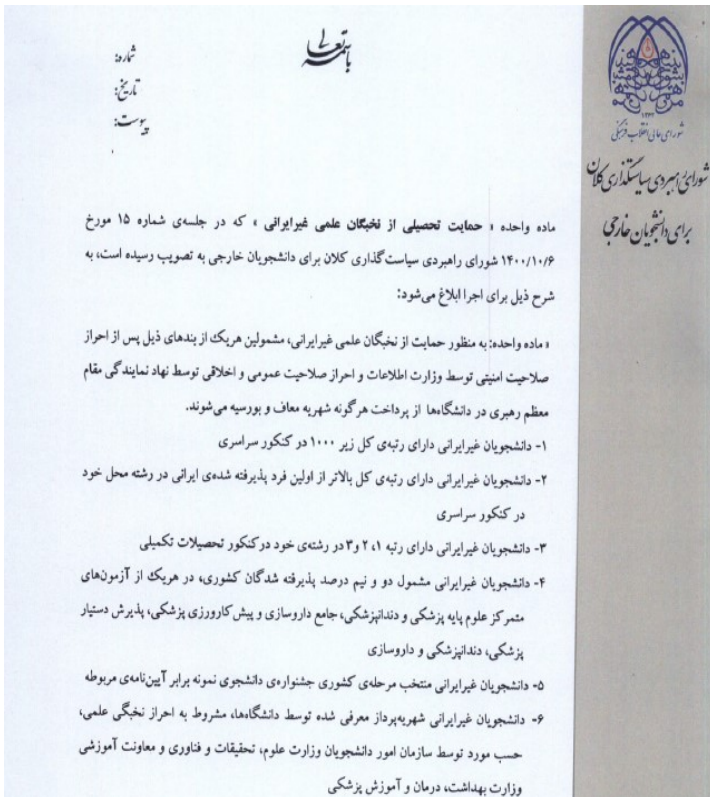 باسمه تعالی
شماره:
تاریخ:
پیوست:
۱۳۴۳
شورای عالی انقلاب فرهنگی
شورای راهبردی سیاستگذاری کلان
برای دانشجویان خارجی
ماده واحده « حمایت تحصیلی از نخبگان علمی غیرایرانی » که در جلسه‌ی شماره ۱۵ مورخ
۱۴۰۰/۱۰/۶ شورای راهبردی سیاست‌گذاری کلان برای دانشجویان خارجی به تصویب رسیده است، به
شرح ذیل برای اجرا ابلاغ می‌شود:
« ماده واحده: به منظور حمایت از نخبگان علمی غیرایرانی، مشمولین هریک از بندهای ذیل پس از احراز
صلاحیت امنیتی توسط وزارت اطلاعات و احراز صلاحیت عمومی و اخلاقی توسط نهاد نمایندگی مقام
معظم رهبری در دانشگاه‌ها از پرداخت هرگونه شهریه معاف و بورسیه می‌شوند.
۱- دانشجویان غیرایرانی دارای رتبه‌ی کل زیر ۱۰۰۰ در کنکور سراسری
۲- دانشجویان غیرایرانی دارای رتبه‌ی کل بالاتر از اولین فرد پذیرفته شده‌ی ایرانی در رشته محل خود
در کنکور سراسری
۳- دانشجویان غیرایرانی دارای رتبه ۱، ۲ و ۳ در رشته‌ی خود درکنکور تحصیلات تکمیلی
۴- دانشجویان غیرایرانی مشمول دو و نیم درصد پذیرفته شدگان کشوری، در هریک از آزمون‌های
متمرکز علوم پایه پزشکی و دندانپزشکی، جامع داروسازی و پیش کارورزی پزشکی، پذیرش دستیار
پزشکی، دندانپزشکی و داروسازی
۵- دانشجویان غیرایرانی منتخب مرحله‌ی کشوری جشنواره‌ی دانشجوی نمونه برابر آیین‌نامه‌ی مربوطه
۶- دانشجویان غیرایرانی شهریه‌پرداز معرفی شده توسط دانشگاه‌ها، مشروط به احراز نخبگی علمی،
حسب مورد توسط سازمان امور دانشجویان وزارت علوم، تحقیقات و فناوری و معاونت آموزشی
وزارت بهداشت، درمان و آموزش پزشکی